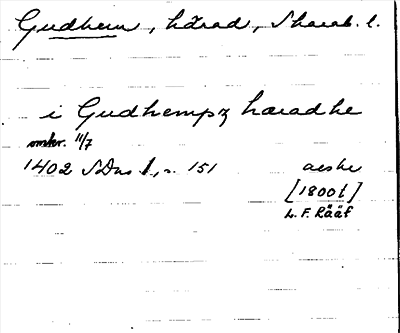 Gudhem, härad, Skarab. l.
i Gudhempz hæradhe
omkr. 11/7
1402 SDns 1, s. 151 avskr
[1800t]
L. F. Rääf